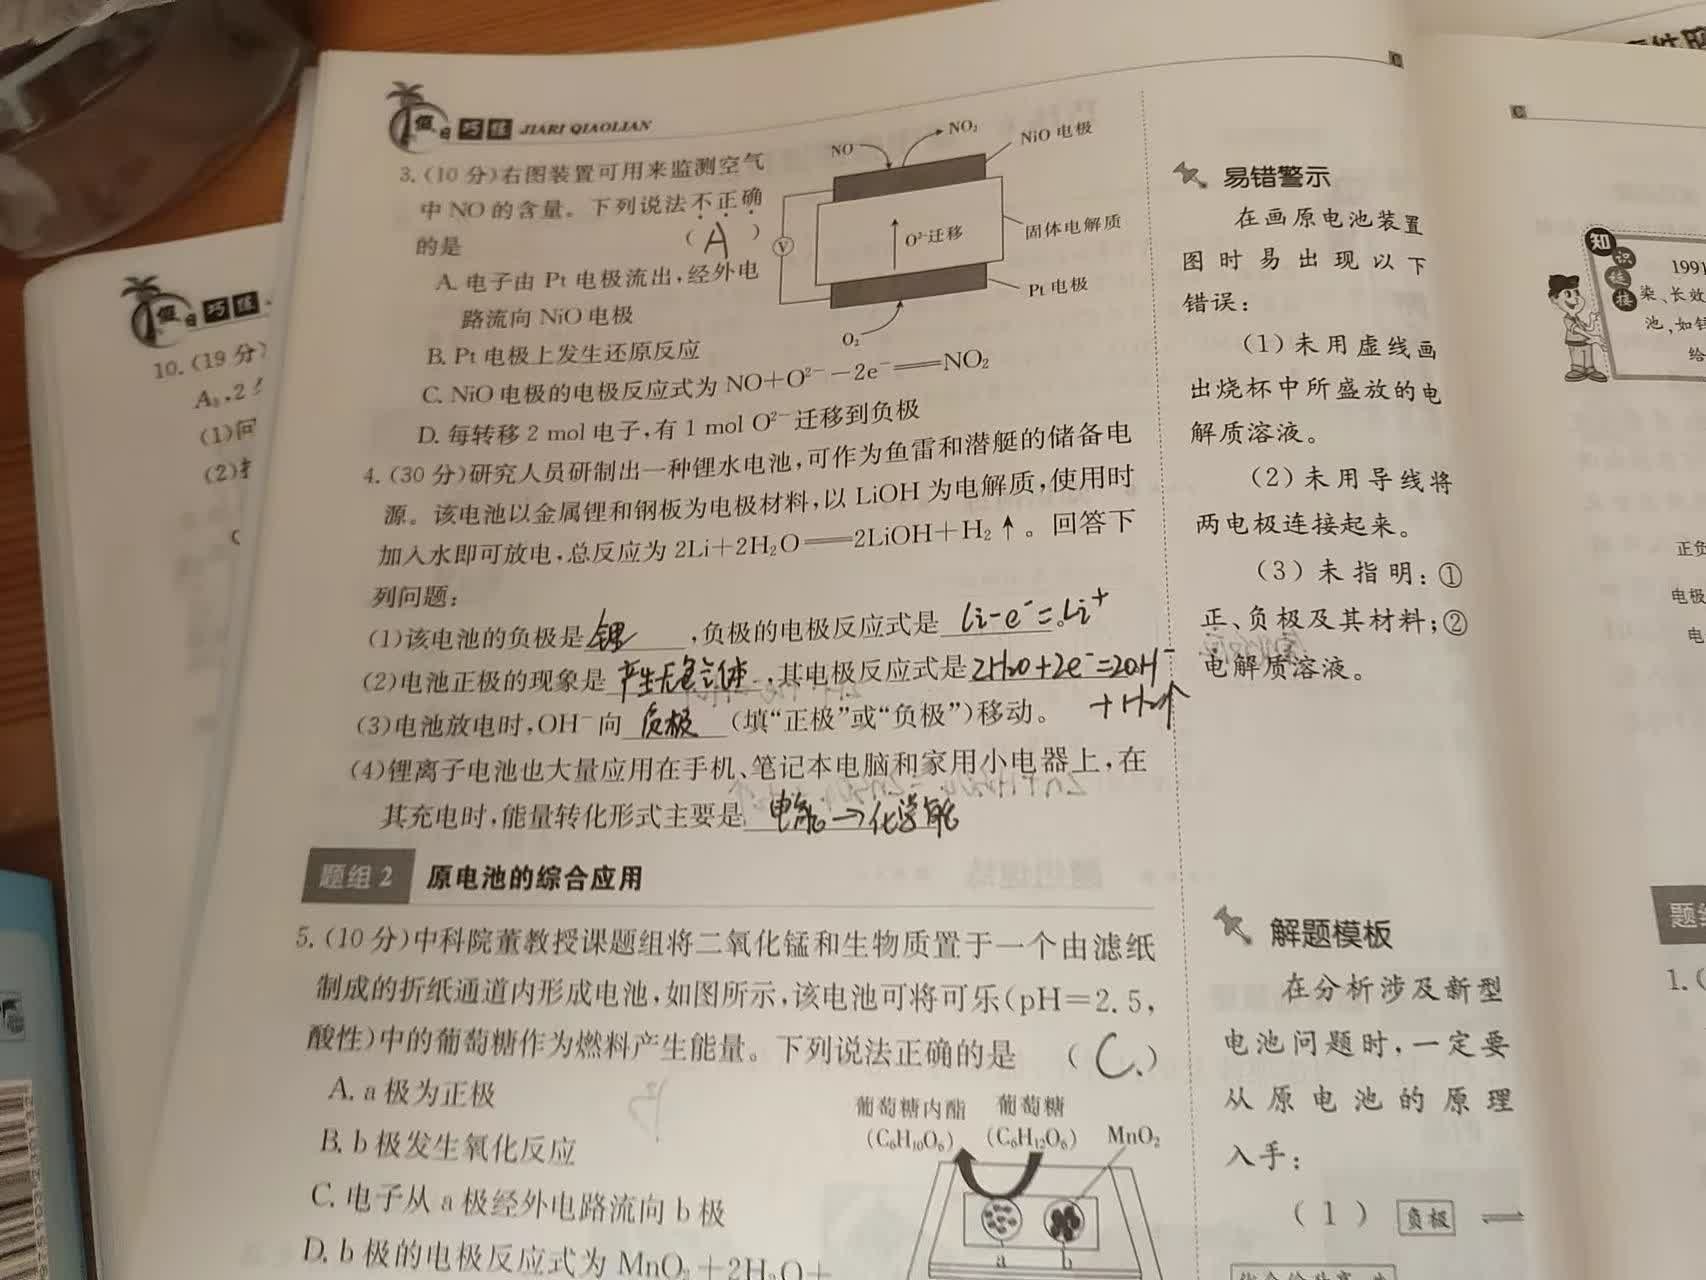 假日巧练 JIARI QIAOLIAN
3.(10分)右图装置可用来监测空气
中NO的含量。下列说法不正确
的是 (A)
A.电子由Pt电极流出,经外电
路流向NiO电极
B.Pt电极上发生还原反应
C.NiO电极的电极反应式为NO+O²⁻-2e⁻══NO₂
D.每转移2 mol电子,有1 mol O²⁻迁移到负极
NO
NO₂
NiO电极
O²⁻迁移
固体电解质
V
Pt电极
O₂
4.(30分)研究人员研制出一种锂水电池,可作为鱼雷和潜艇的储备电
源。该电池以金属锂和钢板为电极材料,以LiOH为电解质,使用时
加入水即可放电,总反应为2Li+2H₂O══2LiOH+H₂↑。回答下
列问题:
(1)该电池的负极是锂,负极的电极反应式是Li-e⁻=Li⁺
(2)电池正极的现象是产生无色气体,其电极反应式是2H₂O+2e⁻=2OH⁻
+H₂↑
(3)电池放电时,OH⁻向负极(填“正极”或“负极”)移动。
(4)锂离子电池也大量应用在手机、笔记本电脑和家用小电器上,在
其充电时,能量转化形式主要是电能→化学能
题组2 原电池的综合应用
5.(10分)中科院董教授课题组将二氧化锰和生物质置于一个由滤纸
制成的折纸通道内形成电池,如图所示,该电池可将可乐(pH=2.5,
酸性)中的葡萄糖作为燃料产生能量。下列说法正确的是 (C)
A.a极为正极
B.b极发生氧化反应
C.电子从a极经外电路流向b极
D.b极的电极反应式为MnO₂+2H₂O+
葡萄糖内酯 葡萄糖
(C₆H₁₀O₆) (C₆H₁₂O₆) MnO₂
a b
易错警示
在画原电池装置
图时易出现以下
错误:
(1)未用虚线画
出烧杯中所盛放的电
解质溶液。
(2)未用导线将
两电极连接起来。
(3)未指明:①
正、负极及其材料;②
电解质溶液。
解题模板
在分析涉及新型
电池问题时,一定要
从原电池的原理
入手:
(1) 负极
假日巧练
10.(19分)
(1)问
(2)
C
知识链接
1991
染、长效
池,如锂
给
正负
电极
电
题组
1.(